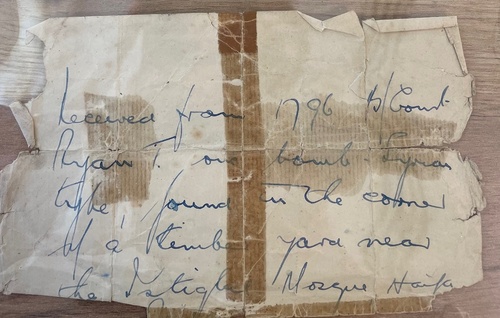 Received from 1796 B/Const
Ryan T. one bomb - Syrian
type, found in the corner
of a timber yard near
the Istiglal Mosque Haifa